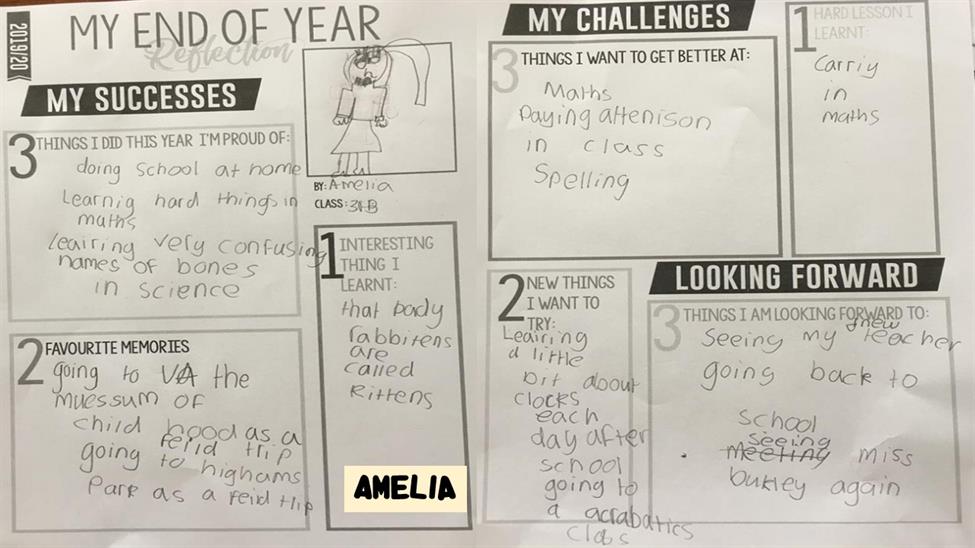 2019/20
MY END OF YEAR
Reflection
MY SUCCESSES
3 THINGS I DID THIS YEAR I'M PROUD OF:
doing school at home
Learnig hard things in
maths
leairing very confusing
names of bones
in science
2 FAVOURITE MEMORIES
going to VA the
muessum of
child hood as a
feild trip
going to highams
Park as a feild trip
BY: Amelia
CLASS: 3HB
1 INTERESTING
THING I
LEARNT:
that baby
rabbitens
are
called
kittens
AMELIA
MY CHALLENGES
3 THINGS I WANT TO GET BETTER AT:
Maths
Paying attenison
in class
Spelling
1 HARD LESSON I
LEARNT:
Carriy
in
maths
2 NEW THINGS
I WANT TO
TRY:
Leairing
a little
bit about
clocks
each
day after
school
going to
a acrabatics
class
LOOKING FORWARD
3 THINGS I AM LOOKING FORWARD TO:
Seeing my new teacher
going back to
school
seeing
meeting miss
bukley again